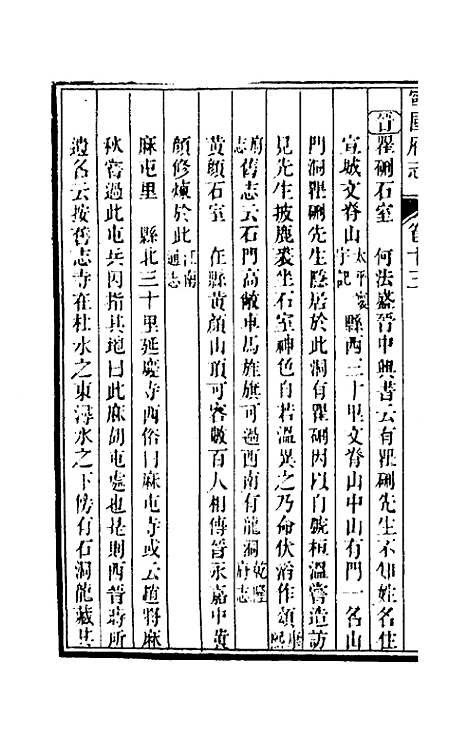 寧國府志 卷十三
晉 瞿硎石室 何法盛晉中興書云有瞿硎先生不知姓名住
宣城文脊山 太平寰宇記 縣西三十里文脊山中山有門一名山
門洞瞿硎先生隱居於此洞有瞿硎因以自號桓溫嘗造訪
見先生披鹿裘坐石室神色自若溫異之乃命伏滔作頌 康熙
府志 舊志云石門高敞車馬旌旗可過西南有龍洞 乾隆府志
黃顏石室 在縣黃顏山頂可容數百人相傳晉永嘉中黃
顏修煉於此 江南通志
麻屯里 縣北三十里延慶寺西俗曰麻屯寺或云趙將麻
秋嘗過此屯兵因指其地曰此麻胡屯處也是則西晉時所
遺名云按舊志寺在杜水之東潯水之下傍有石洞龍藏其